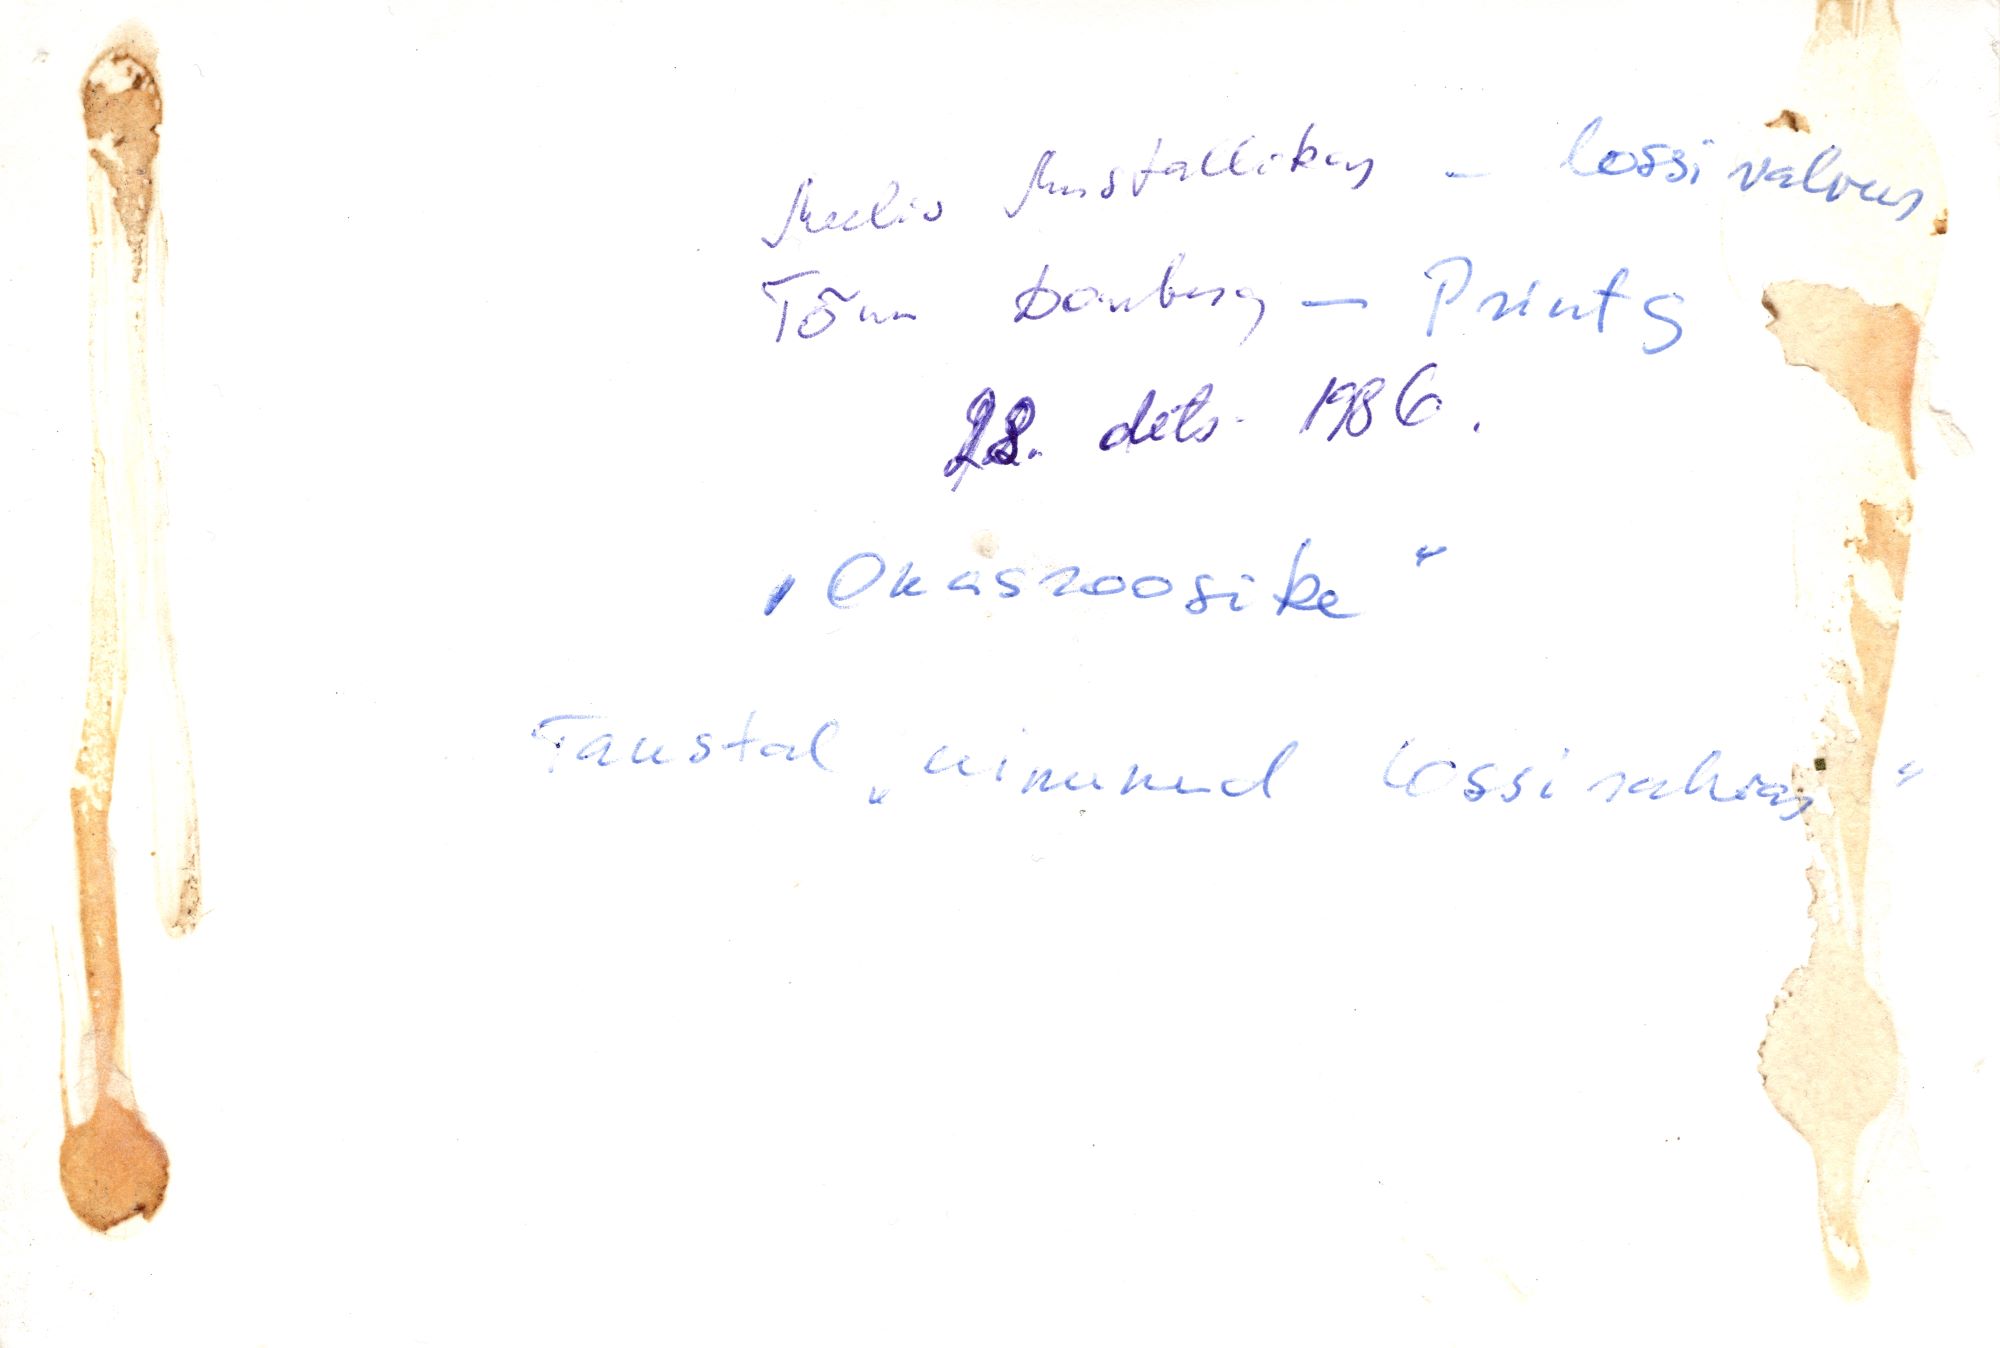 Meelis Mustallikas – lossi valvur
Tõnu Domberg – Prints
28. dets. 1986.
„Okasroosike“
Taustal „uinunud lossirahvas“